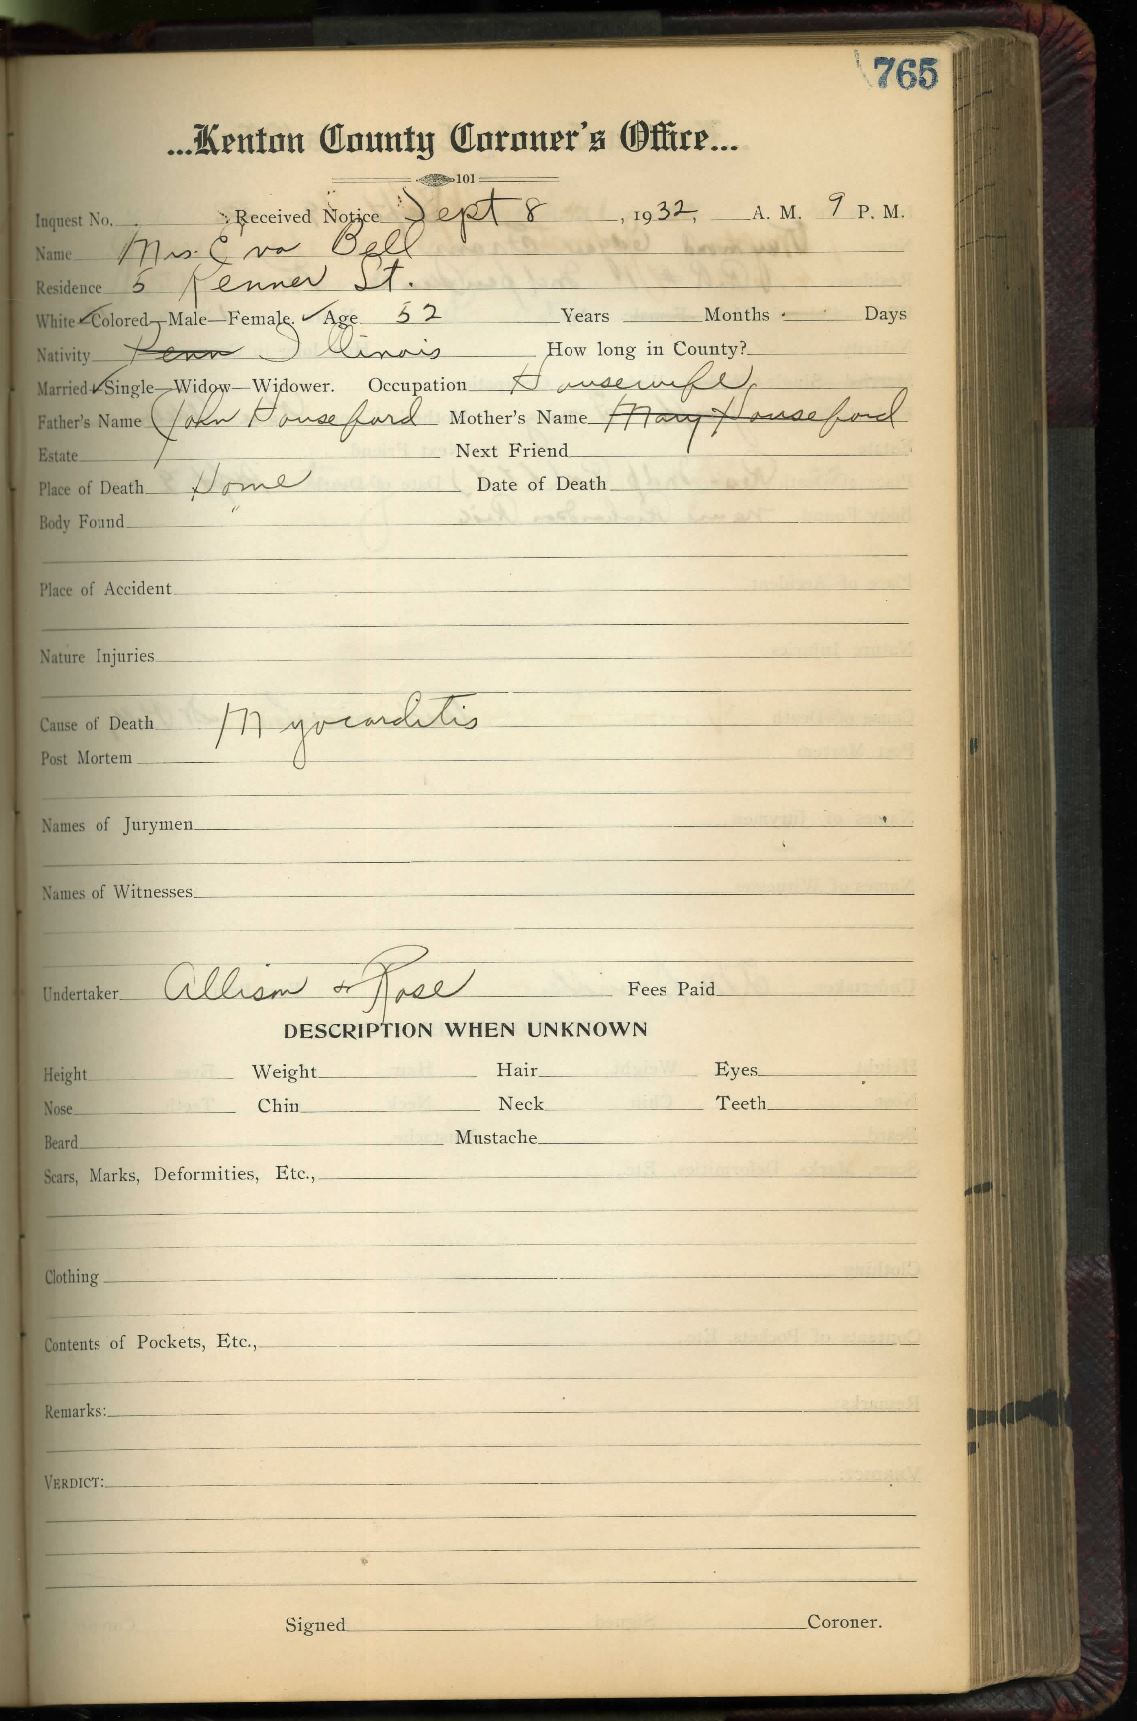 765
...Kenton County Coroner's Office...
101
Inquest No. Received Notice Sept 8, 1932, A. M. 9 P. M.
Name Mrs. Eva Bell
Residence 5 Renner St.
White ✓ Colored—Male—Female. ✓ Age 52 Years Months Days
Nativity Penn Illinois How long in County?
Married ✓ Single—Widow—Widower. Occupation Housewife
Father's Name John Houseford Mother's Name Mary Houseford
Estate Next Friend
Place of Death Home Date of Death
Body Found "
Place of Accident
Nature Injuries
Cause of Death Myocarditis
Post Mortem
Names of Jurymen
Names of Witnesses
Undertaker Allison & Rose Fees Paid
DESCRIPTION WHEN UNKNOWN
Height Weight Hair Eyes
Nose Chin Neck Teeth
Beard Mustache
Scars, Marks, Deformities, Etc.,
Clothing
Contents of Pockets, Etc.,
Remarks:
VERDICT:
Signed Coroner.